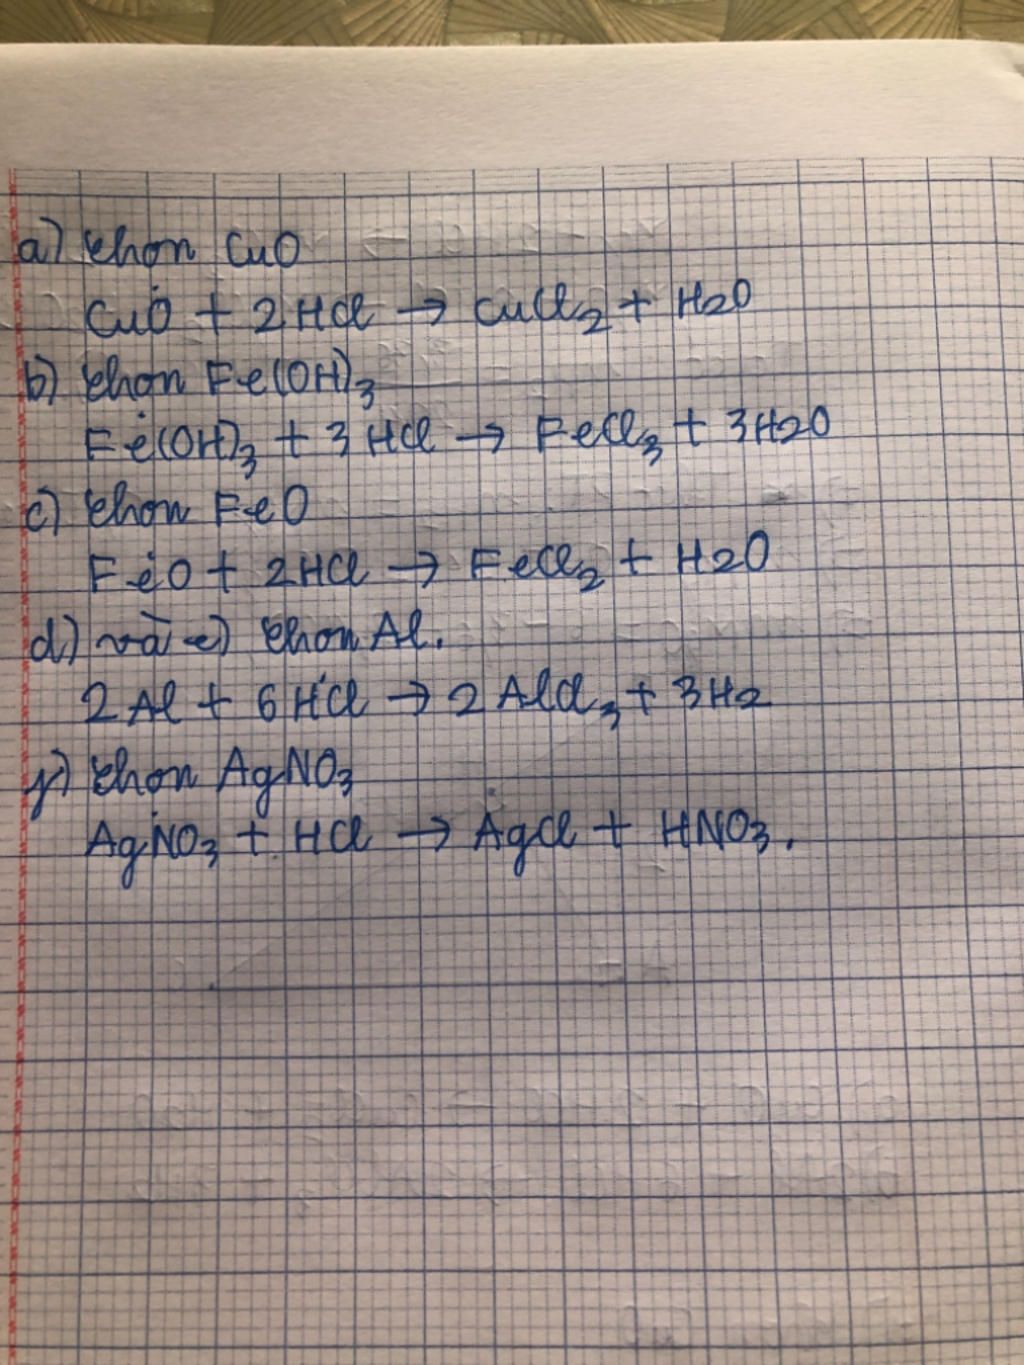 a) chọn CuO
CuO + 2HCl → CuCl₂ + H2O
b) chọn Fe(OH)₃
Fe(OH)₃ + 3HCl → FeCl₃ + 3H2O
c) chọn FeO
FeO + 2HCl → FeCl₂ + H2O
d) và e) chọn Al.
2Al + 6HCl → 2AlCl₃ + 3H2
f) chọn AgNO₃
AgNO₃ + HCl → AgCl + HNO₃.